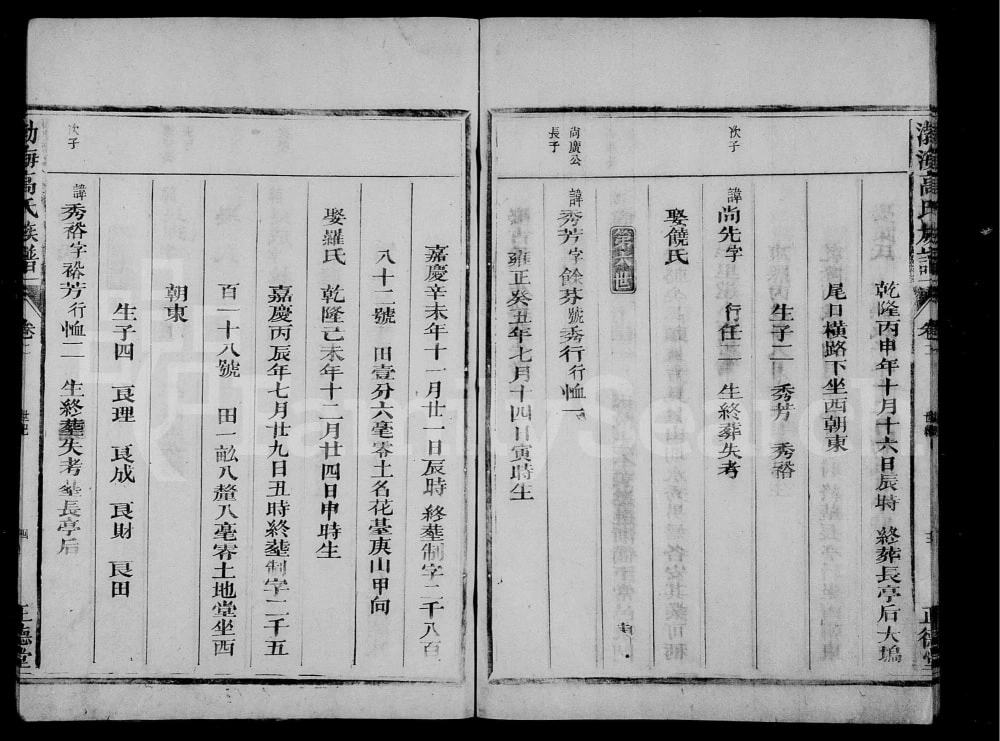 渤海高氏族譜
卷
世系
正德堂
乾隆丙申年十月十六日辰時 終葬長亭后大塢
尾日橫路下坐西朝東
娶饒氏
生子二 秀芳 秀裕
次子
諱尚先字 行任二 生終葬失考
第十六世
尚廣公
長子
諱秀芳字餘芬號秀行行恤一
雍正癸丑年七月十四日寅時生
嘉慶辛未年十一月廿一日辰時 終塟制字二千八百
八十二號 田壹分六毫零土名花臺庚山甲向
娶羅氏 乾隆己未年十二月廿四日申時生
嘉慶丙辰年七月廿九日丑時終塟制字二千五
百一十八號 田一畝八釐八毫零土地堂坐西
朝東
生子四 良理 良成 良財 良田
次子
諱秀裕字裕芳行恤二 生終塟失考塟長亭后
渤海高氏族譜
卷
世系
四
正德堂